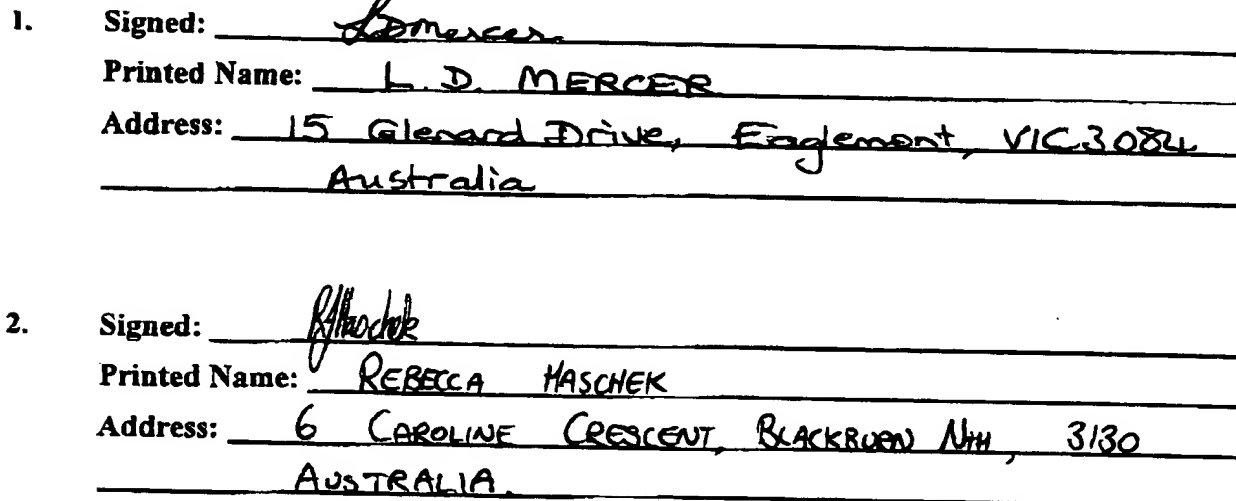 1. Signed: LDMercer
Printed Name: L. D. MERCER
Address: 15 Glenard Drive, Eaglemont, VIC 3084
Australia
2. Signed: RJHaschek
Printed Name: REBECCA HASCHEK
Address: 6 CAROLINE CRESCENT, BLACKBURN NTH, 3130
AUSTRALIA.